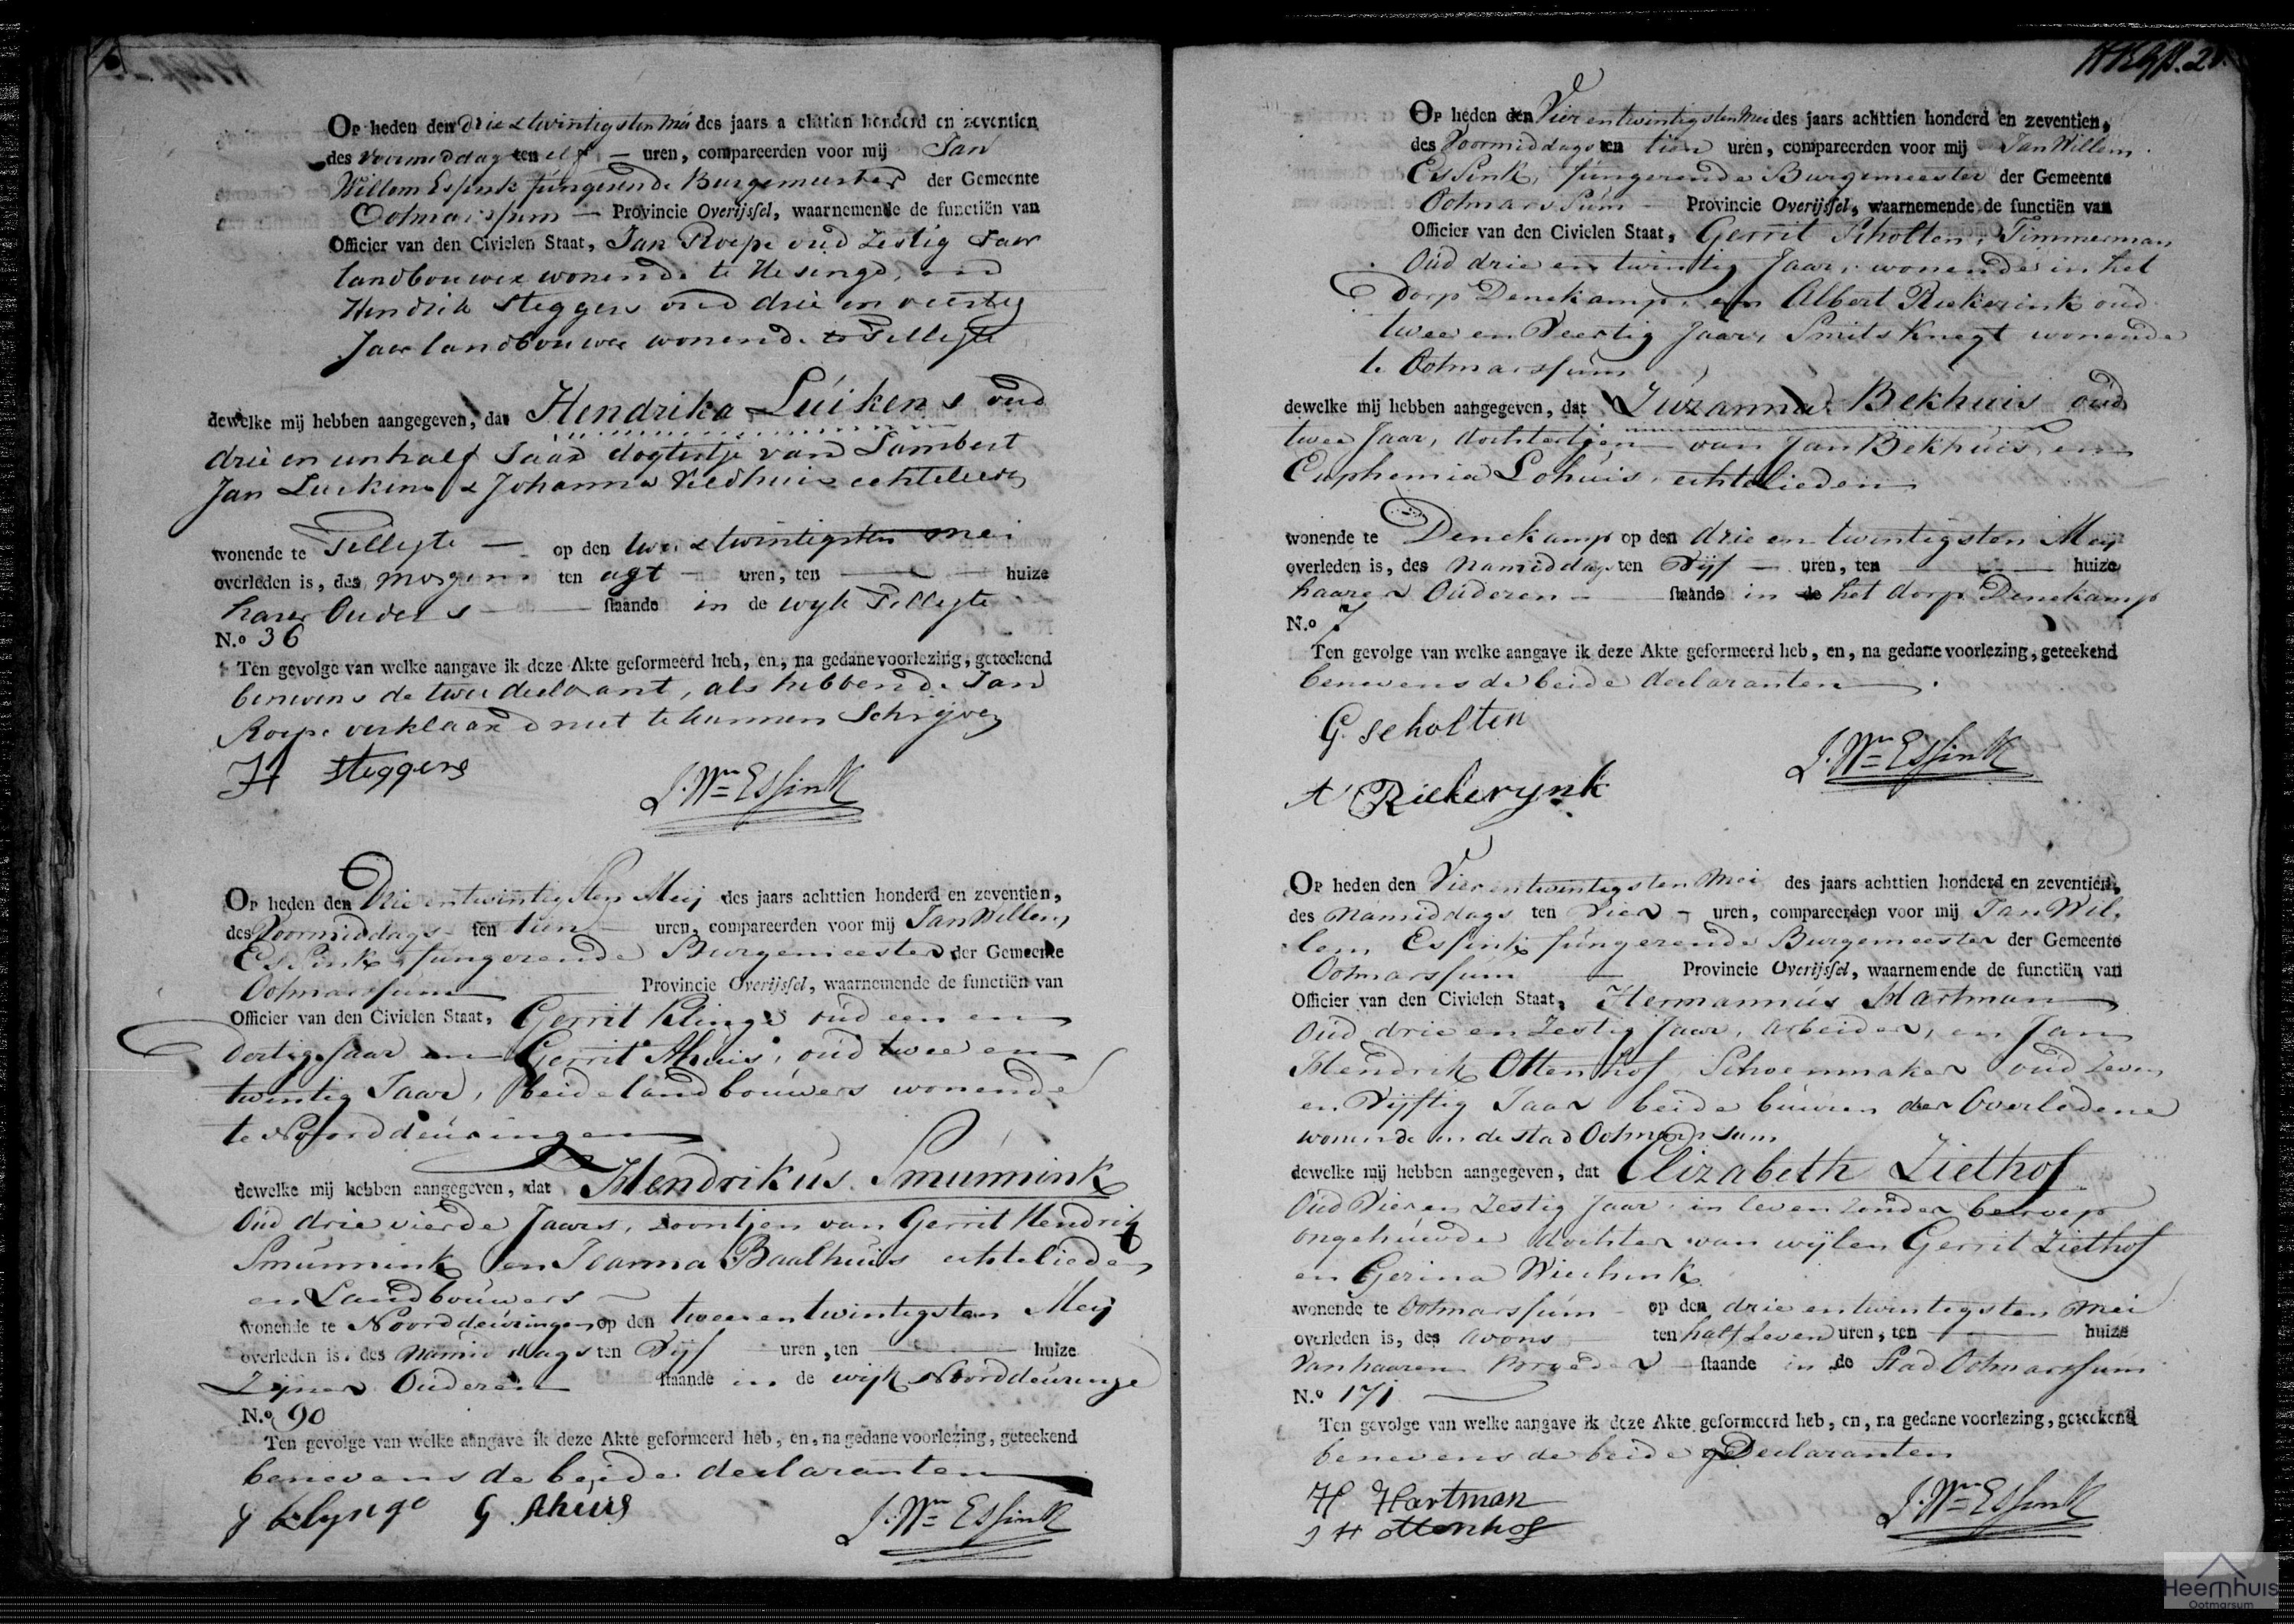 Op heden den drie & twintigsten Mei des jaars achttien honderd en zeventien
des voormiddag ten elf — uren, compareerden voor mij Jan
Willem Essink fungerende Burgemeester der Gemeente
Ootmarssum — Provincie Overijssel, waarnemende de functiën van
Officier van den Civielen Staat, Jan Roepe oud Zestig Jaar
landbouwer wonende te Hesinge, en
Hendrik Steggers oud drie en veertig
Jaar landbouwer wonende te Tilligte
dewelke mij hebben aangegeven, dat Hendrika Luikens oud
drie en un half Jaar dogtertje van Lambert
Jan Luikens & Johanna Veldhuis echtelieden
wonende te Tilligte — op den twee & twintigsten Mei
overleden is, des morgens ten agt — uren, ten — huize
harer Ouders — staande in de wyk Tilligte
N.o 36
Ten gevolge van welke aangave ik deze Akte geformeerd heb, en, na gedane voorlezing, geteekend
benevens de twee declarant, als hebbende Jan
Roepe verklaard niet te kunnen Schrijven
H Steggers
J. Wm Essink
Op heden den Drie en twintigsten Meij des jaars achttien honderd en zeventien,
des Voormiddags ten tien — uren, compareerden voor mij Jan Willem
Essink, fungerende Burgemeester der Gemeente
Ootmarssum — Provincie Overijssel, waarnemende de functiën van
Officier van den Civielen Staat, Gerrit Klinge oud een en
Dertig Jaar en Gerrit Ahuis, oud twee en
twintig Jaar, beide landbouwers wonende
te Noorddeuringen
dewelke mij hebben aangegeven, dat Hendrikus Smunnink
Oud drie vierde Jaars, zoontjen van Gerrit Hendrik
Smunnink en Joanna Baalhuis echtelieden
en Landbouwers —
wonende te Noorddeuringen op den twee en twintigsten Meij
overleden is, des Namiddags ten Vijf — uren, ten — huize
Zijner Ouderen staande in de wijk Noorddeuringe
N.o 90
Ten gevolge van welke aangave ik deze Akte geformeerd heb, en, na gedane voorlezing, geteekend
benevens de beide declaranten
g klynge G Ahuis
J. Wm Essink
Op heden den Vier en twintigsten Mei des jaars achttien honderd en zeventien,
des Voormiddags ten tien uren, compareerden voor mij Jan Willem
Essink, fungerende Burgemeester der Gemeente
Ootmarssum — Provincie Overijssel, waarnemende de functiën van
Officier van den Civielen Staat, Gerrit Scholten, Timmerman
Oud drie en twintig Jaar, wonende in het
Dorp Denekamp, en Albert Riekerink oud
twee en Veertig Jaar, Smits Knegt wonende
te Ootmarssum
dewelke mij hebben aangegeven, dat Zuzanna Bekhuis oud
twee Jaar, dochtertjen van Jan Bekhuis en
Euphemia Lohuis, echtelieden
wonende te Denekamp op den drie en twintigsten Mey
overleden is, des Namiddags ten Vijf — uren, ten — huize
haarer Ouderen — staande in de het dorp Denekamp
N.o 7
Ten gevolge van welke aangave ik deze Akte geformeerd heb, en, na gedane voorlezing, geteekend
benevens de beide declaranten
G. Scholten
J. Wm Essink
A Riekerynk
Op heden den Vier en twintigsten Mei des jaars achttien honderd en zeventien,
des Namiddags ten Vier — uren, compareerden voor mij Jan Wil,
lem Essink, fungerende Burgemeester der Gemeente
Ootmarssum — Provincie Overijssel, waarnemende de functiën van
Officier van den Civielen Staat, Hermannus Hartman
Oud drie en Zestig Jaar, arbeider, en Jan
Hendrik Ottenhof, Schoenmaker oud Zeven
en Vijftig Jaar beide buuren der Overledene
wonende in de stad Ootmarssum
dewelke mij hebben aangegeven, dat Elizabeth Ziethof
Oud Vier en Zestig Jaar, in leven Zonder beroep
ongehuwde dochter van wijlen Gerrit Ziethof
en Gerina Wiechink
wonende te Ootmarssum — op den drie en twintigsten Mei
overleden is, des avons ten half Zeven uren, ten — huize
Van haaren Broeder staande in de Stad Ootmarssum
N.o 171
Ten gevolge van welke aangave ik deze Akte geformeerd heb, en, na gedane voorlezing, geteekend
benevens de beide Declaranten
H. Hartman
J H Ottenhof
J. Wm Essink
Heemhuis
Ootmarsum